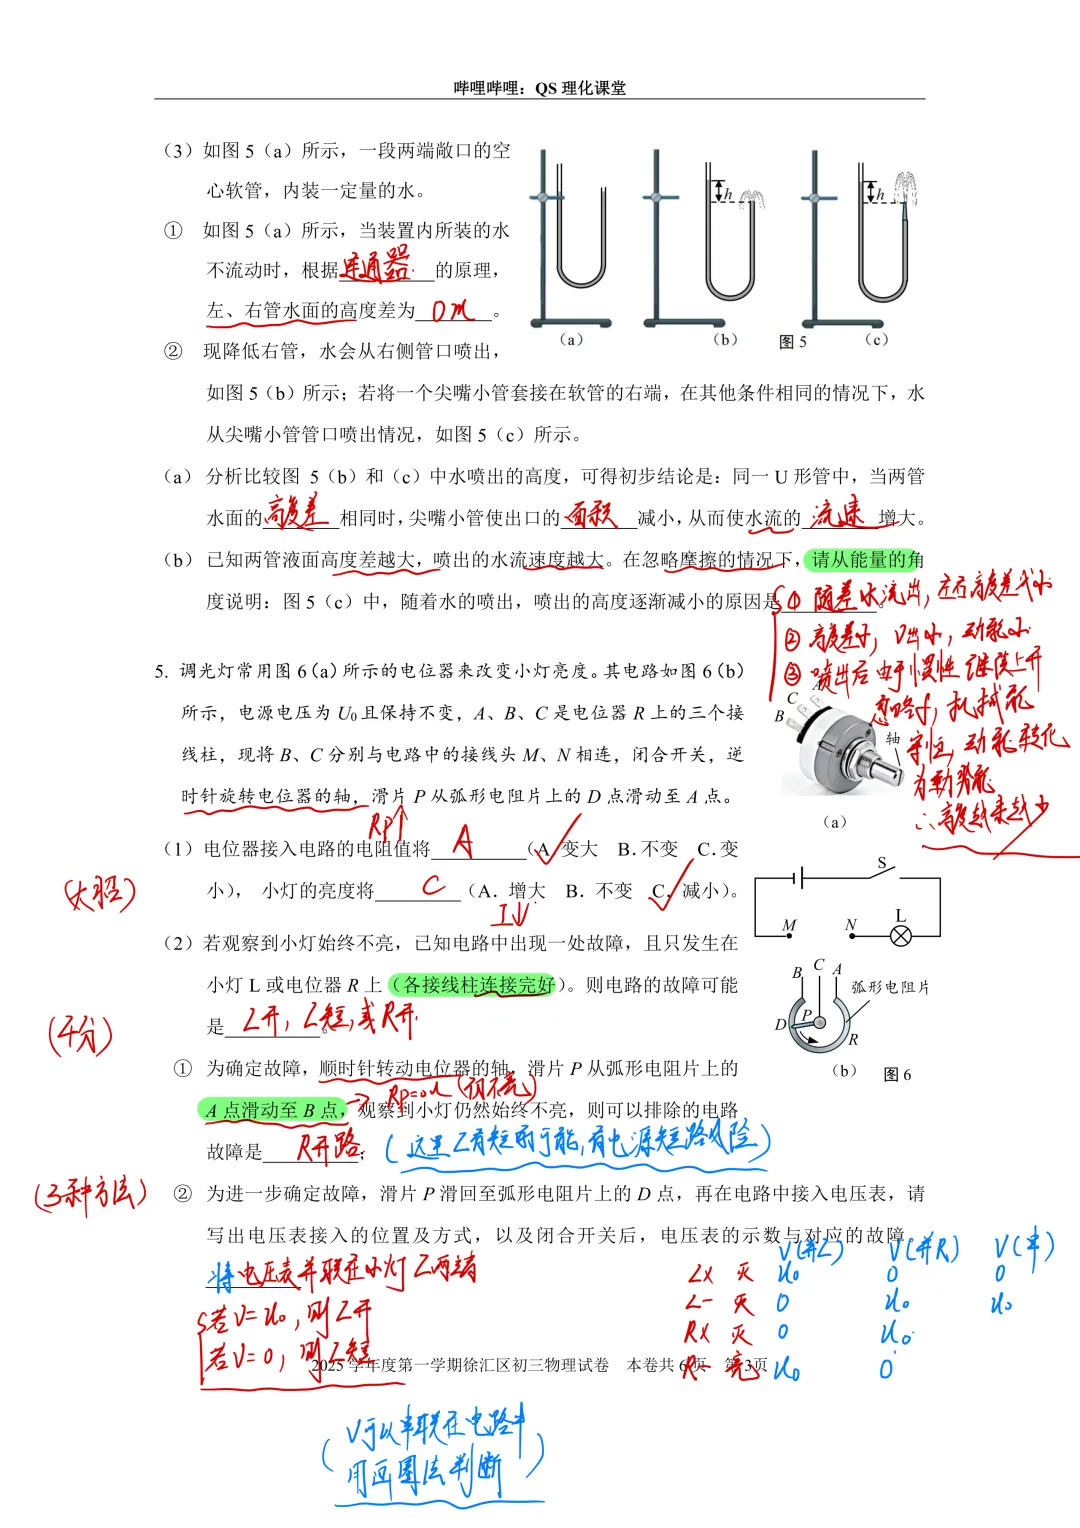 哔哩哔哩：QS 理化课堂
（3）如图 5（a）所示，一段两端敞口的空
心软管，内装一定量的水。
① 如图 5（a）所示，当装置内所装的水
不流动时，根据连通器的原理，
左、右管水面的高度差为0M。
② 现降低右管，水会从右侧管口喷出，
h
h
（a）
（b）
图 5
（c）
如图 5（b）所示；若将一个尖嘴小管套接在软管的右端，在其他条件相同的情况下，水
从尖嘴小管管口喷出情况，如图 5（c）所示。
（a）分析比较图 5（b）和（c）中水喷出的高度，可得初步结论是：同一 U 形管中，当两管
水面的高度差相同时，尖嘴小管使出口的面积减小，从而使水流的流速增大。
（b）已知两管液面高度差越大，喷出的水流速度越大。在忽略摩擦的情况下，请从能量的角
度说明：图 5（c）中，随着水的喷出，喷出的高度逐渐减小的原因是。
① 随着水流出，左右高度差减小
② 高度差小，V出小，动能小
③ 喷出后由于惯性继续上升
忽略f，机械能
守恒，动能转化
为重力势能
∴高度越来越小
5. 调光灯常用图 6（a）所示的电位器来改变小灯亮度。其电路如图 6（b）
所示，电源电压为 U₀且保持不变，A、B、C 是电位器 R 上的三个接
线柱，现将 B、C 分别与电路中的接线头 M、N 相连，闭合开关，逆
时针旋转电位器的轴，滑片 P 从弧形电阻片上的 D 点滑动至 A 点。
A
C
B
轴
（a）
Rp↑
（1）电位器接入电路的电阻值将 A （A 变大 B.不变 C.变
小），小灯的亮度将 C （A. 增大 B. 不变 C. 减小）。
I↓
（2）若观察到小灯始终不亮，已知电路中出现一处故障，且只发生在
小灯 L 或电位器 R 上（各接线柱连接完好）。则电路的故障可能
是 L开，L短，或R开。
S
M
N
L
B C A
弧形电阻片
D P
R
（b）
图 6
① 为确定故障，顺时针转动电位器的轴，滑片 P 从弧形电阻片上的
A 点滑动至 B 点，观察到小灯仍然始终不亮，则可以排除的电路
故障是 R开路；（这里L有短的可能，有电源短路风险）
（3种方法）
② 为进一步确定故障，滑片 P 滑回至弧形电阻片上的 D 点，再在电路中接入电压表，请
写出电压表接入的位置及方式，以及闭合开关后，电压表的示数与对应的故障。
将电压表并联在小灯L两端
若V=U₀，则L开
若V=0，则L短
V(并L) V(并R) V(串)
L× 灭 U₀ 0 0
L− 灭 0 U₀ U₀
R× 灭 0 U₀
R− 亮 U₀ 0
2025 学年度第一学期徐汇区初三物理试卷 本卷共 6 页 第 3页
（V可以串联在电路中
用画圈法判断）